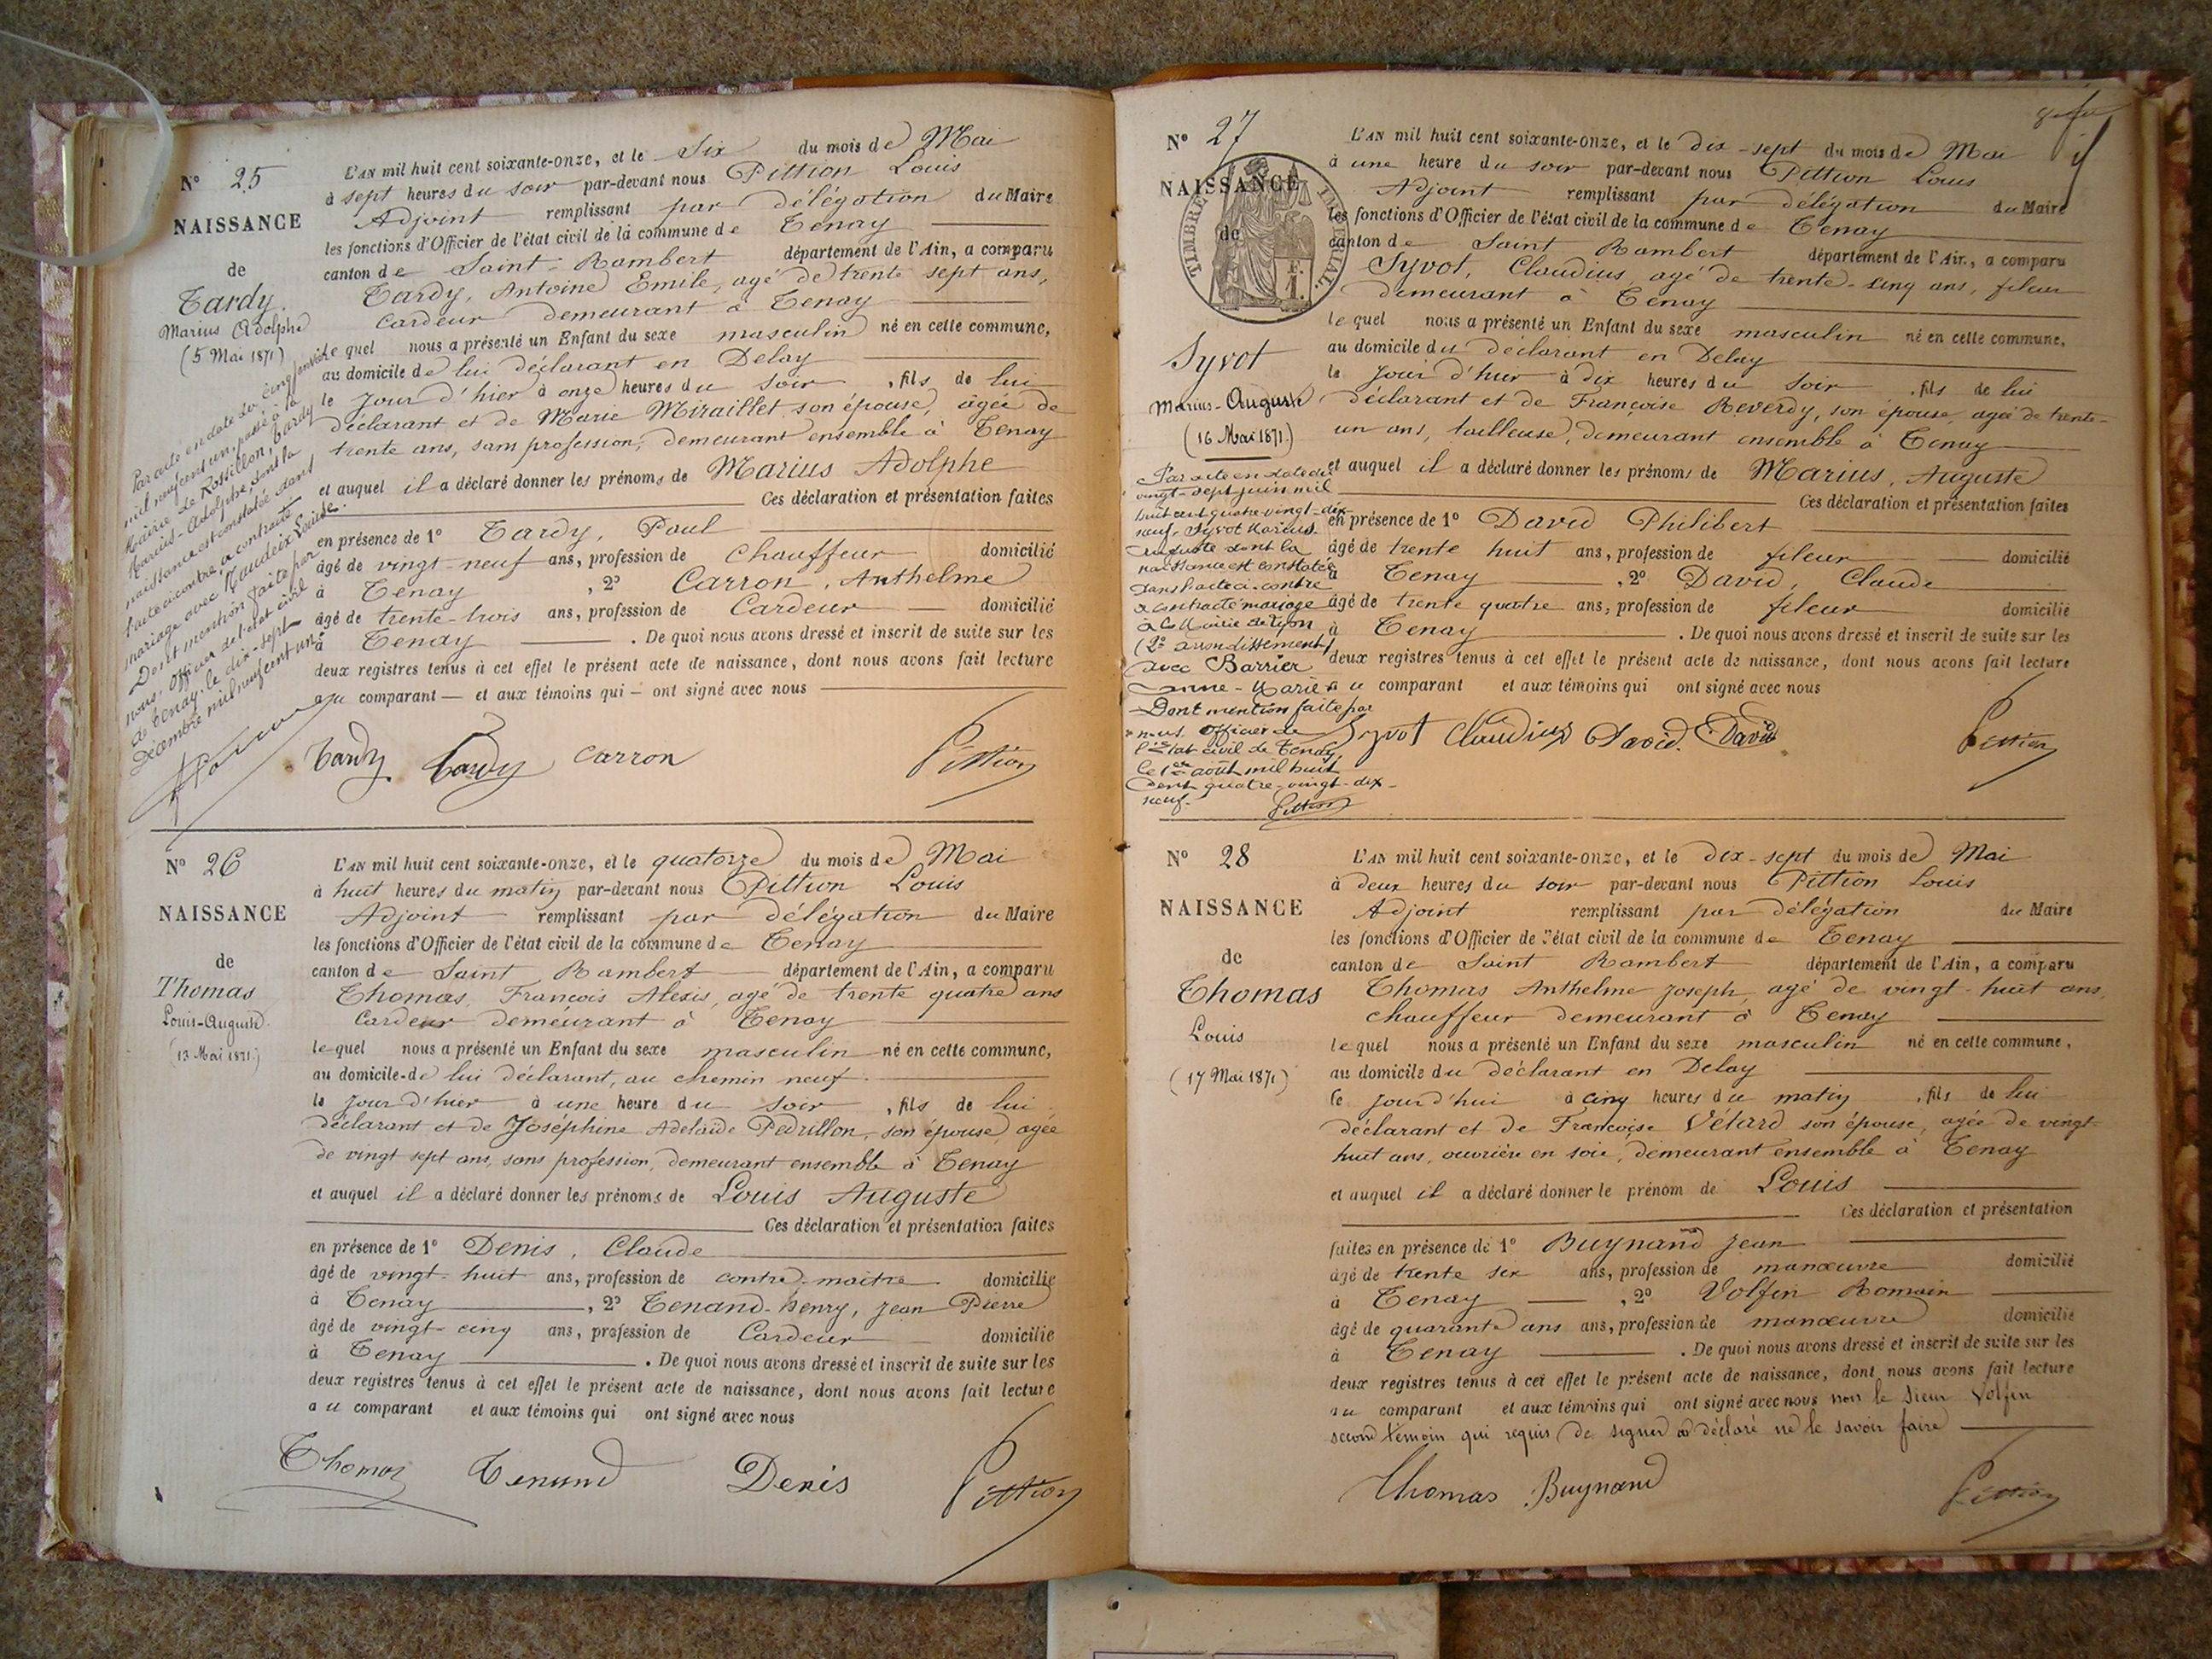 N° 25
NAISSANCE
de
Tardy
Marius Adolphe
(5 Mai 1871)
Par acte en date du cinq janvier
mil neuf cent un, passé à la
Mairie de Rossillon, Tardy
Marius-Adolphe, dont la
naissance est constatée dans
l'acte ci-contre, a contracté
mariage avec Maudeix Louise.
Dont mention faite par
nous, officier de l'état civil
de Tenay, le dix-sept
Décembre mil neuf cent un.
L'AN mil huit cent soixante-onze, et le Six du mois de Mai
à sept heures du soir par-devant nous Pittion Louis
Adjoint remplissant par délégation du Maire
les fonctions d'Officier de l'état civil de la commune de Tenay
canton de Saint-Rambert département de l'Ain, a comparu
Tardy, Antoine Emile, agé de trente sept ans,
Cardeur demeurant à Tenay
lequel nous a présenté un Enfant du sexe masculin né en cette commune,
au domicile de lui déclarant en Delay
le jour d'hier à onze heures du soir, fils de lui
déclarant et de Marie Miraillet son épouse, agée de
trente ans, sans profession, demeurant ensemble à Tenay
et auquel il a déclaré donner les prénoms de Marius Adolphe
Ces déclaration et présentation faites
en présence de 1° Tardy, Paul
âgé de vingt-neuf ans, profession de Chauffeur domicilié
à Tenay, 2° Carron, Anthelme
âgé de trente-trois ans, profession de Cardeur domicilié
à Tenay. De quoi nous avons dressé et inscrit de suite sur les
deux registres tenus à cet effet le présent acte de naissance, dont nous avons fait lecture
au comparant — et aux témoins qui — ont signé avec nous
Tardy Tardy Carron Pittion
N° 26
NAISSANCE
de
Thomas
Louis-Auguste
(13 Mai 1871)
L'AN mil huit cent soixante-onze, et le quatorze du mois de Mai
à huit heures du matin par-devant nous Pittion Louis
Adjoint remplissant par délégation du Maire
les fonctions d'Officier de l'état civil de la commune de Tenay
canton de Saint Rambert département de l'Ain, a comparu
Thomas, François Alexis, agé de trente quatre ans
Cardeur demeurant à Tenay
lequel nous a présenté un Enfant du sexe masculin né en cette commune,
au domicile de lui déclarant, au chemin neuf.
le jour d'hier à une heure du soir, fils de lui
déclarant et de Joséphine Adelaïde Pedrillon, son épouse, agée
de vingt sept ans, sans profession, demeurant ensemble à Tenay
et auquel il a déclaré donner les prénoms de Louis Auguste
Ces déclaration et présentation faites
en présence de 1° Denis, Claude
âgé de vingt-huit ans, profession de contre-maître domicilié
à Tenay, 2° Tenand-henry, Jean Pierre
âgé de vingt-cinq ans, profession de Cardeur domicilié
à Tenay. De quoi nous avons dressé et inscrit de suite sur les
deux registres tenus à cet effet le présent acte de naissance, dont nous avons fait lecture
au comparant et aux témoins qui ont signé avec nous
Thomas Tenand Denis Pittion
N° 27
NAISSANCE
de
TIMBRE IMPÉRIAL
Syvot
Marius-Auguste
(16 Mai 1871.)
Par acte en date du
vingt-sept juin mil
huit cent quatre-vingt-dix-
neuf, Syvot Marius
Auguste dont la
naissance est constatée
dans l'acte ci-contre
a contracté mariage
à la Mairie de Lyon
(2e arrondissement)
avec Barrier
Anne-Marie
Dont mention faite par
nous, Officier de
l'état civil de Tenay
le 1er août mil huit
cent quatre-vingt-dix-
neuf.
Pittion
L'AN mil huit cent soixante-onze, et le dix-sept du mois de Mai
à une heure du soir par-devant nous Pittion Louis
Adjoint remplissant par délégation du Maire
les fonctions d'Officier de l'état civil de la commune de Tenay
canton de Saint Rambert département de l'Ain, a comparu
Syvot, Claudius, agé de trente-cinq ans, fileur
demeurant à Tenay
lequel nous a présenté un Enfant du sexe masculin né en cette commune,
au domicile du déclarant en Delay
le jour d'hier à dix heures du soir, fils de lui
déclarant et de Françoise Reverdy, son épouse, agée de trente-
un ans, tailleuse, demeurant ensemble à Tenay
et auquel il a déclaré donner les prénoms de Marius, Auguste
Ces déclaration et présentation faites
en présence de 1° David Philibert
âgé de trente huit ans, profession de fileur domicilié
à Tenay, 2° David, Claude
âgé de trente quatre ans, profession de fileur domicilié
à Tenay. De quoi nous avons dressé et inscrit de suite sur les
deux registres tenus à cet effet le présent acte de naissance, dont nous avons fait lecture
au comparant et aux témoins qui ont signé avec nous
Syvot Claudius David David Pittion
N° 28
NAISSANCE
de
Thomas
Louis
(17 Mai 1871)
L'AN mil huit cent soixante-onze, et le dix-sept du mois de Mai
à deux heures du soir par-devant nous Pittion Louis
Adjoint remplissant par délégation du Maire
les fonctions d'Officier de l'état civil de la commune de Tenay
canton de Saint Rambert département de l'Ain, a comparu
Thomas Anthelme Joseph, agé de vingt-huit ans,
chauffeur demeurant à Tenay
lequel nous a présenté un Enfant du sexe masculin né en cette commune,
au domicile du déclarant en Delay
le jourd'hui à cinq heures du matin, fils de lui
déclarant et de Françoise Vétard son épouse, agée de vingt-
huit ans, ouvrière en soie, demeurant ensemble à Tenay
et auquel il a déclaré donner le prénom de Louis
Ces déclaration et présentation
faites en présence de 1° Buynand Jean
âgé de trente six ans, profession de manœuvre domicilié
à Tenay, 2° Volfin Romain
âgé de quarante ans ans, profession de manœuvre domicilié
à Tenay. De quoi nous avons dressé et inscrit de suite sur les
deux registres tenus à cet effet le présent acte de naissance, dont nous avons fait lecture
au comparant et aux témoins qui ont signé avec nous non le Sieur Volfin
second témoin qui requis de signer a déclaré ne le savoir faire
Thomas Buynand Pittion